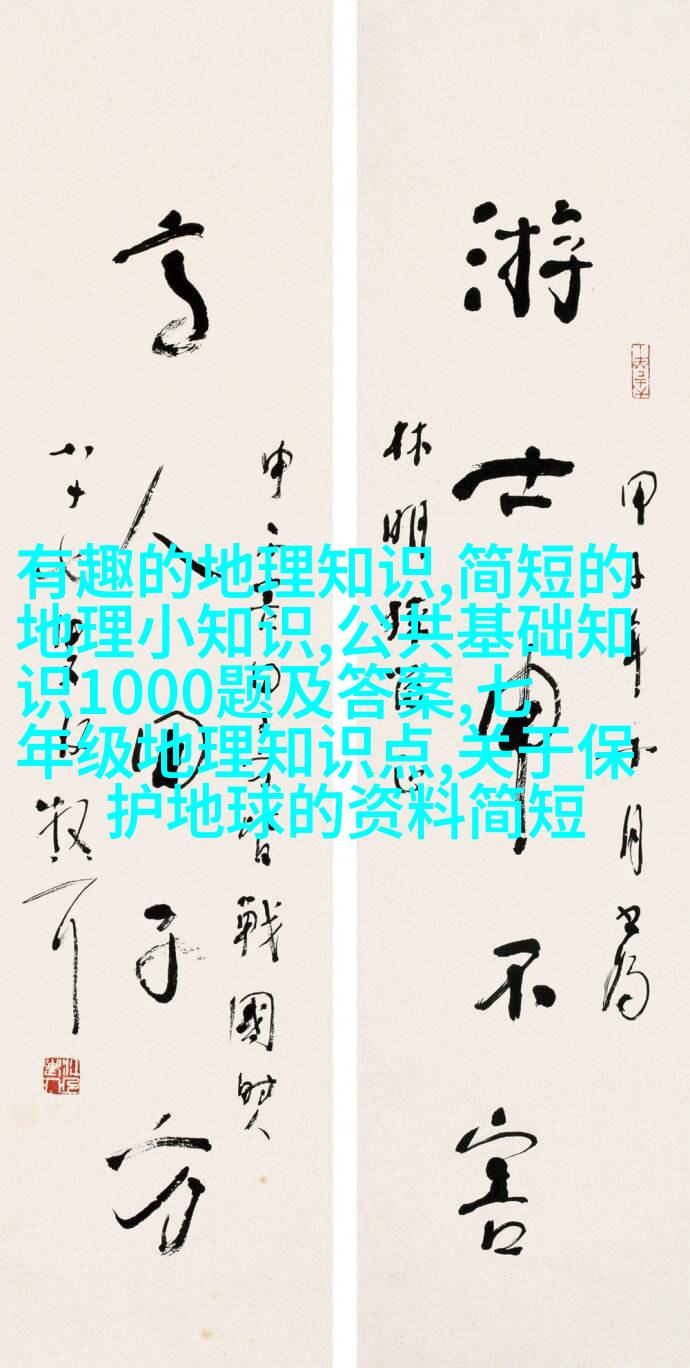 甲子年十月書為
游士申不害
林明
高人田子方
戰國賢人
有趣的地理知识,简短的
地理小知识,公共基础知
识1000题及答案,七
年级地理知识点,关于保
护地球的资料简短